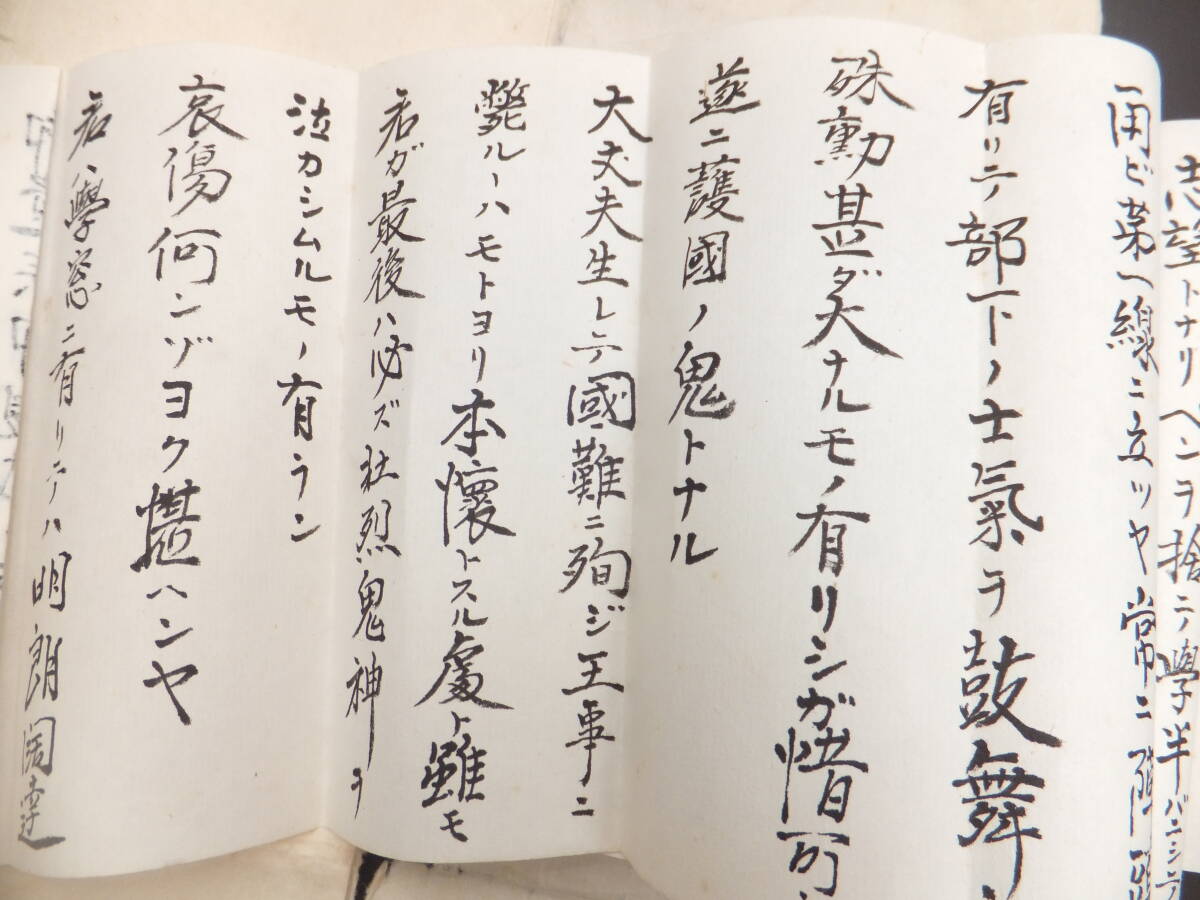 志望トナリペンヲ捨テ學半バニシテ
用ヒ第一線ニ立ツヤ常ニ
有リテ部下ノ士氣ヲ鼓舞シ
殊勳甚ダ大ナルモノ有リシガ惜可
遂ニ護國ノ鬼トナル
大丈夫生レテ國難ニ殉ジ王事ニ
斃ルヽハモトヨリ本懷トスル處ト雖モ
君ガ最後ハ必ズ壮烈鬼神ヲ
泣カシムルモノ有ラン
哀傷何ンゾヨク堪ヘンヤ
君ハ學窓ニ有リテハ明朗闊達